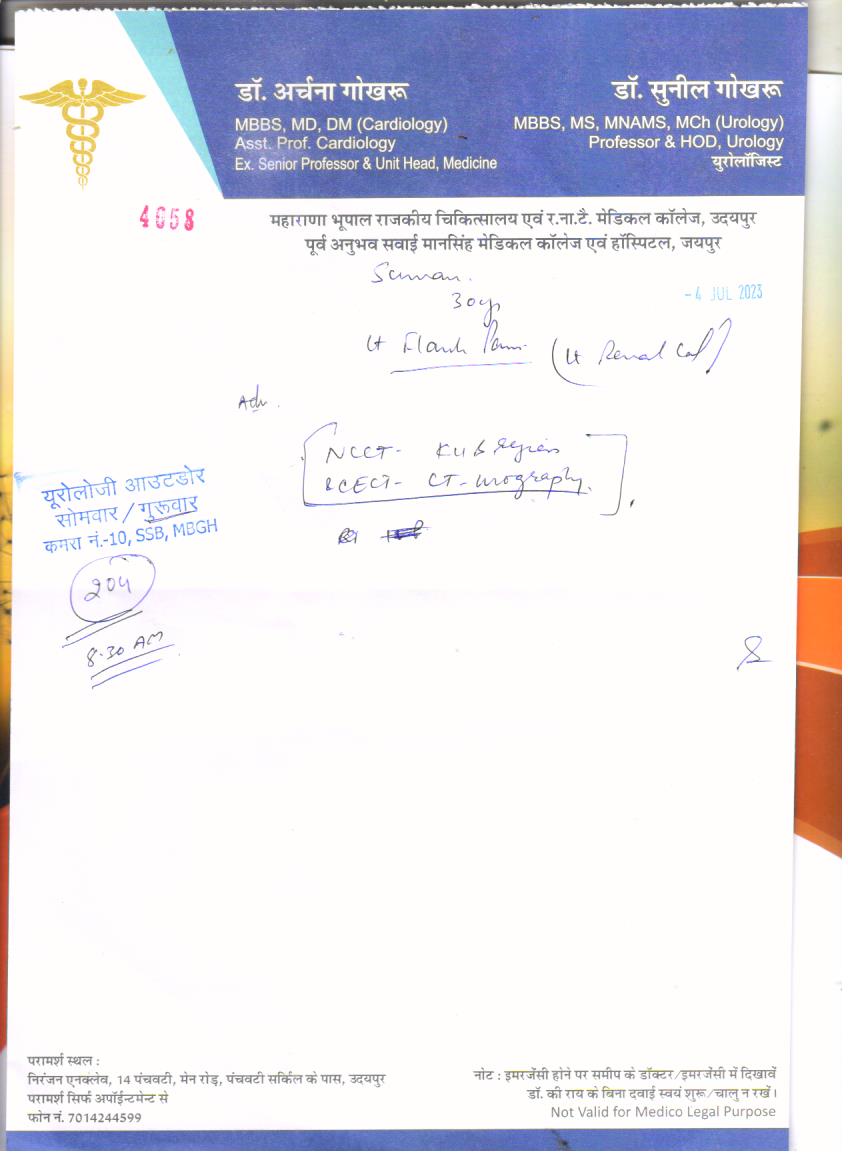 डॉ. अर्चना गोखरू
MBBS, MD, DM (Cardiology)
Asst. Prof. Cardiology
Ex. Senior Professor & Unit Head, Medicine
डॉ. सुनील गोखरू
MBBS, MS, MNAMS, MCh (Urology)
Professor & HOD, Urology
यूरोलॉजिस्ट
4058
महाराणा भूपाल राजकीय चिकित्सालय एवं र.ना.टै. मेडिकल कॉलेज, उदयपुर
पूर्व अनुभव सवाई मानसिंह मेडिकल कॉलेज एवं हॉस्पिटल, जयपुर
Suman.
- 4 JUL 2023
30 yr
Lt Flank Pain (Lt Renal Cal)
Adv.
NCCT- KUB region
& CECT- CT-urography.
यूरोलोजी आउटडोर
सोमवार / गुरूवार
कमरा नं.-10, SSB, MBGH
204
8.30 AM
परामर्श स्थल :
निरंजन एनक्लेव, 14 पंचवटी, मेन रोड़, पंचवटी सर्किल के पास, उदयपुर
परामर्श सिर्फ अपॉईन्टमेन्ट से
फोन नं. 7014244599
नोट : इमरजेंसी होने पर समीप के डॉक्टर/इमरजेंसी में दिखावें
डॉ. की राय के बिना दवाई स्वयं शुरू/चालु न रखें।
Not Valid for Medico Legal Purpose